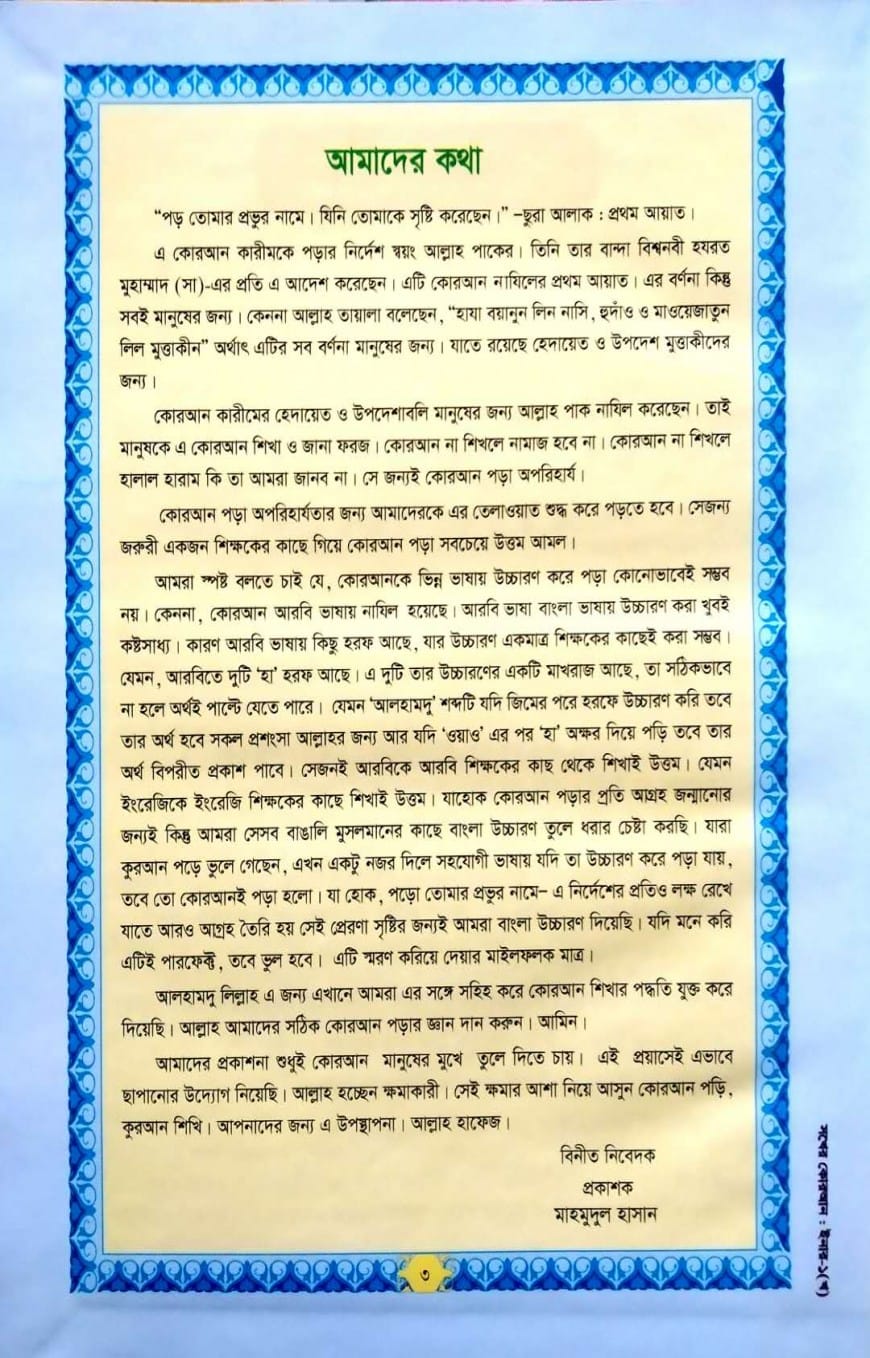 আমাদের কথা
“পড় তোমার প্রভুর নামে। যিনি তোমাকে সৃষ্টি করেছেন।” –ছুরা আলাক : প্রথম আয়াত।
এ কোরআন কারীমকে পড়ার নির্দেশ স্বয়ং আল্লাহ পাকের। তিনি তার বান্দা বিশ্বনবী হযরত
মুহাম্মাদ (সা)-এর প্রতি এ আদেশ করেছেন। এটি কোরআন নাযিলের প্রথম আয়াত। এর বর্ণনা কিন্তু
সবই মানুষের জন্য। কেননা আল্লাহ তায়ালা বলেছেন, “হাযা বয়ানুন লিন নাসি, হুদাঁও ও মাওয়েজাতুন
লিল মুত্তাকীন” অর্থাৎ এটির সব বর্ণনা মানুষের জন্য। যাতে রয়েছে হেদায়েত ও উপদেশ মুত্তাকীদের
জন্য।
কোরআন কারীমের হেদায়েত ও উপদেশাবলি মানুষের জন্য আল্লাহ পাক নাযিল করেছেন। তাই
মানুষকে এ কোরআন শিখা ও জানা ফরজ। কোরআন না শিখলে নামাজ হবে না। কোরআন না শিখলে
হালাল হারাম কি তা আমরা জানব না। সে জন্যই কোরআন পড়া অপরিহার্য।
কোরআন পড়া অপরিহার্যতার জন্য আমাদেরকে এর তেলাওয়াত শুদ্ধ করে পড়তে হবে। সেজন্য
জরুরী একজন শিক্ষকের কাছে গিয়ে কোরআন পড়া সবচেয়ে উত্তম আমল।
আমরা স্পষ্ট বলতে চাই যে, কোরআনকে ভিন্ন ভাষায় উচ্চারণ করে পড়া কোনোভাবেই সম্ভব
নয়। কেননা, কোরআন আরবি ভাষায় নাযিল হয়েছে। আরবি ভাষা বাংলা ভাষায় উচ্চারণ করা খুবই
কষ্টসাধ্য। কারণ আরবি ভাষায় কিছু হরফ আছে, যার উচ্চারণ একমাত্র শিক্ষকের কাছেই করা সম্ভব।
যেমন, আরবিতে দুটি ‘হা’ হরফ আছে। এ দুটি তার উচ্চারণের একটি মাখরাজ আছে, তা সঠিকভাবে
না হলে অর্থই পাল্টে যেতে পারে। যেমন ‘আলহামদু’ শব্দটি যদি জিমের পরে হরফে উচ্চারণ করি তবে
তার অর্থ হবে সকল প্রশংসা আল্লাহর জন্য আর যদি ‘ওয়াও’ এর পর ‘হা’ অক্ষর দিয়ে পড়ি তবে তার
অর্থ বিপরীত প্রকাশ পাবে। সেজনই আরবিকে আরবি শিক্ষকের কাছ থেকে শিখাই উত্তম। যেমন
ইংরেজিকে ইংরেজি শিক্ষকের কাছে শিখাই উত্তম। যাহোক কোরআন পড়ার প্রতি আগ্রহ জন্মানোর
জন্যই কিন্তু আমরা সেসব বাঙালি মুসলমানের কাছে বাংলা উচ্চারণ তুলে ধরার চেষ্টা করছি। যারা
কুরআন পড়ে ভুলে গেছেন, এখন একটু নজর দিলে সহযোগী ভাষায় যদি তা উচ্চারণ করে পড়া যায়,
তবে তো কোরআনই পড়া হলো। যা হোক, পড়ো তোমার প্রভুর নামে– এ নির্দেশের প্রতিও লক্ষ রেখে
যাতে আরও আগ্রহ তৈরি হয় সেই প্রেরণা সৃষ্টির জন্যই আমরা বাংলা উচ্চারণ দিয়েছি। যদি মনে করি
এটিই পারফেক্ট, তবে ভুল হবে। এটি স্মরণ করিয়ে দেয়ার মাইলফলক মাত্র।
আলহামদু লিল্লাহ এ জন্য এখানে আমরা এর সঙ্গে সহিহ করে কোরআন শিখার পদ্ধতি যুক্ত করে
দিয়েছি। আল্লাহ আমাদের সঠিক কোরআন পড়ার জ্ঞান দান করুন। আমিন।
আমাদের প্রকাশনা শুধুই কোরআন মানুষের মুখে তুলে দিতে চায়। এই প্রয়াসেই এভাবে
ছাপানোর উদ্যোগ নিয়েছি। আল্লাহ হচ্ছেন ক্ষমাকারী। সেই ক্ষমার আশা নিয়ে আসুন কোরআন পড়ি,
কুরআন শিখি। আপনাদের জন্য এ উপস্থাপনা। আল্লাহ হাফেজ।
বিনীত নিবেদক
প্রকাশক
মাহমুদুল হাসান
৩
কোরআন : ইনার-১(খ)